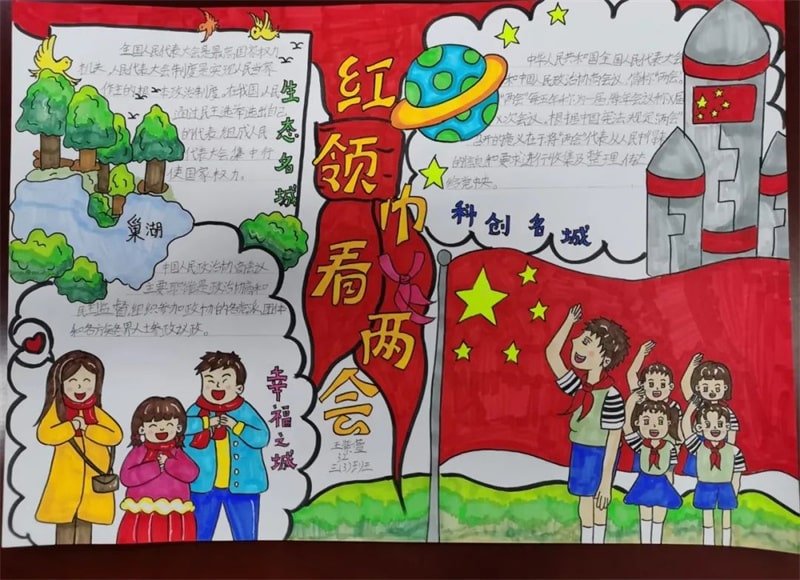 红领巾看两会
全国人民代表大会是最高国家权力
机关。人民代表大会制度是实现人民当家
作主的
政治制度，在我国人民
通过民主选举选出自己
的代表，组成人民
代表大会，集中行
使国家权力。
生态名城
巢湖
中华人民共和国全国人民代表大会
和中国人民政治协商会议，简称“两会，
“两会”每五年称为一届，每年会议称X届
X次会议，根据中国宪法规定“两会”
的意义在于将“两会”代表从人民中
的
和要求进行收集及整理，传达
给党中央。
科创名城
中国人民政治协商会议
主要职能是政治协商和
民主监督，组织参加政协的各党派、团体
和各族各界人士参政议政。
幸福之城
三(3)班